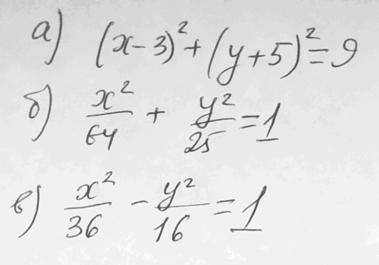 а) (x-3)²+(y+5)²=9
б) x²/64 + y²/25 = 1
в) x²/36 - y²/16 = 1